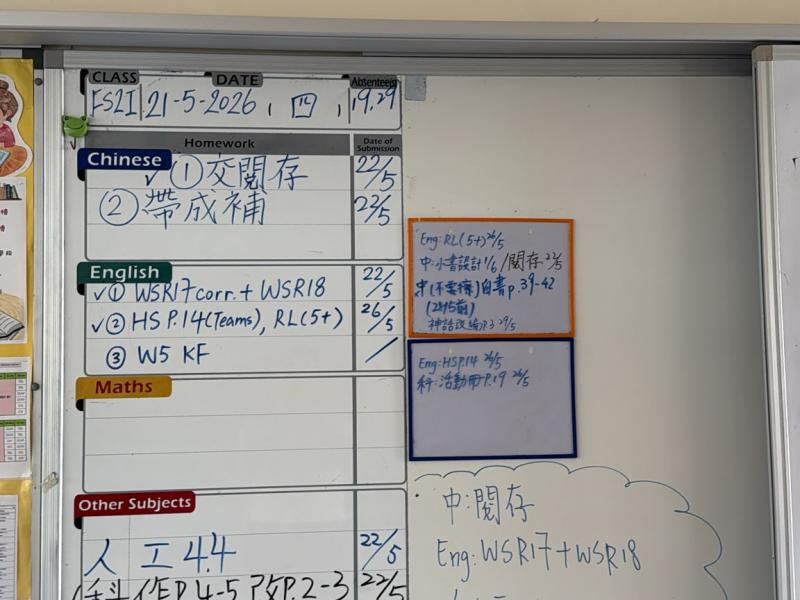 CLASS DATE Absentees
FS2I 21-5-2026, 四, 19.29
Homework Date of Submission
Chinese
✓ ① 交閱存 22/5
② 帶成補 22/5
English
✓ ① WSR17 corr. + WSR18 22/5
✓ ② HS P.14 (Teams), RL(5+) 26/5
③ W5 KF /
Maths
Other Subjects
人工 4.4 22/5
P.4-5 改P.2-3 22/5
Eng: RL(5+) 26/5
中:小書設計 1/6 /閱存 22/5
中(不要擦)白書p.39-42
神話改編P.3 29/5
Eng: HSP.14 26/5
科:活動冊P.19 26/5
中:閱存
Eng: WSR17 + WSR18